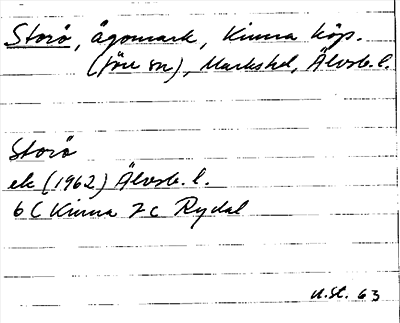 Storö, ägomark, Kinna köp.
(förr sn), Markshd, Älvsb. l.
Storö
ek (1962) Älvsb. l.
6 C Kinna 7 c Rydal
N.St. 63